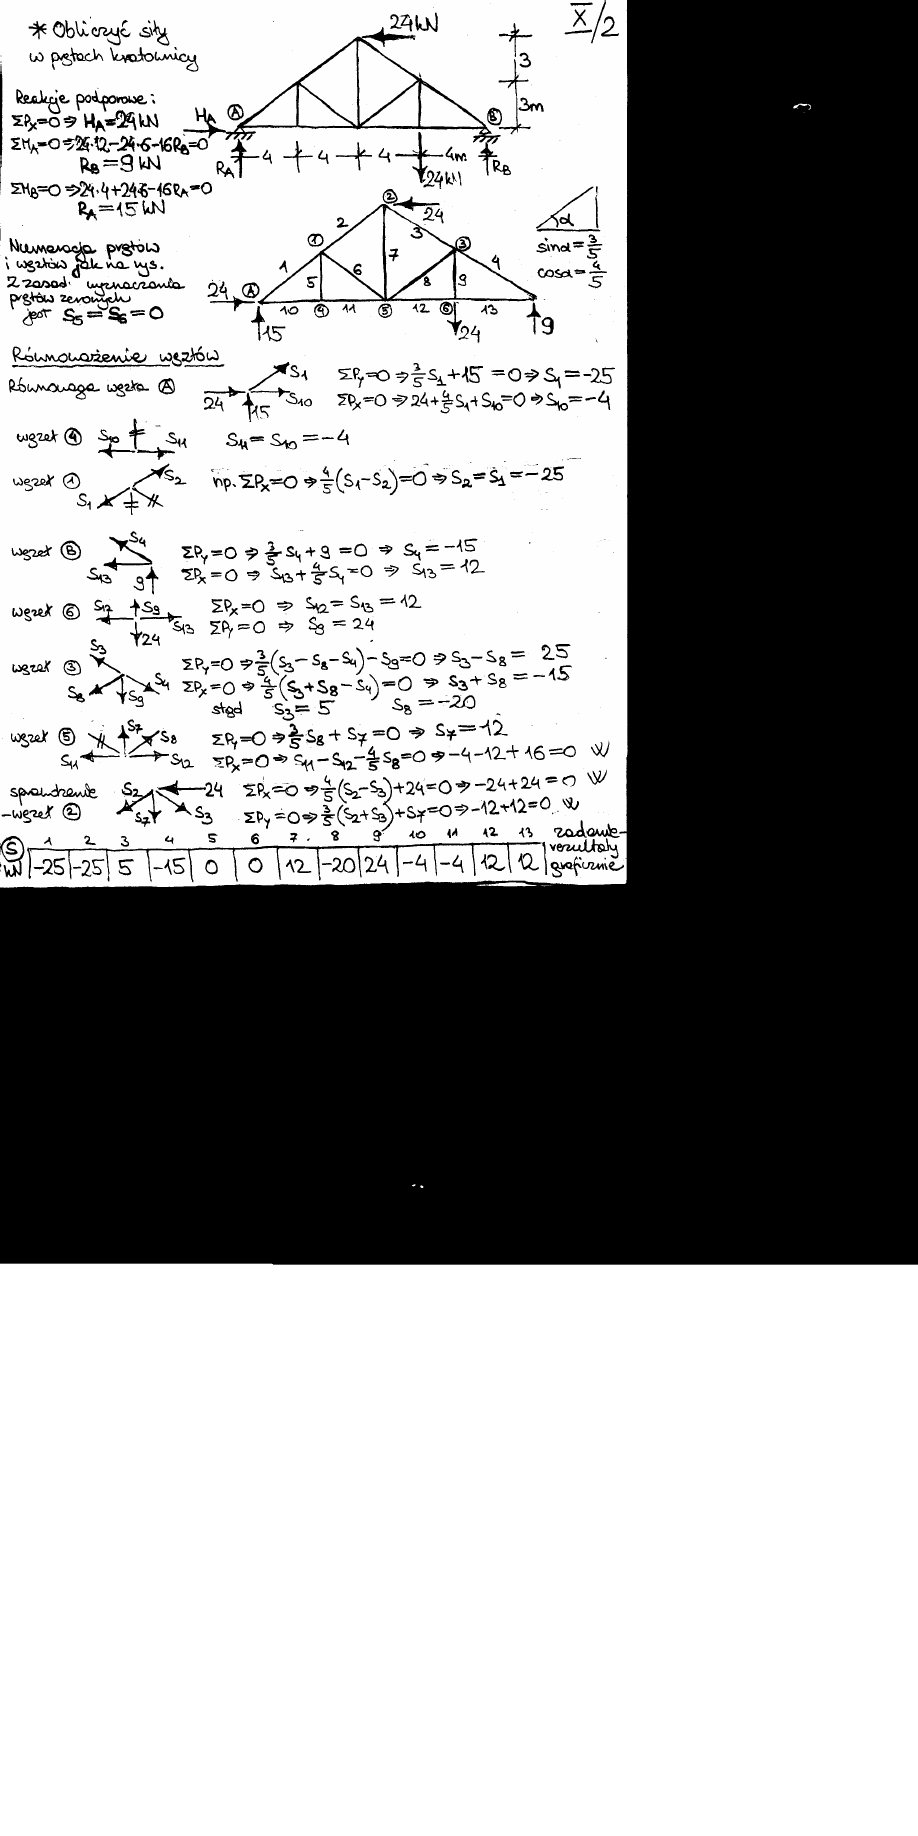 * Obliczyć siły
w prętach kratownicy
X/2
24kN
3
3m
Reakcje podporowe:
ΣPx=0 ⇒ HA=24kN
ΣMA=0 ⇒ 24·12-24·6-16RB=0
RB=9kN
ΣMB=0 ⇒ 24·4+24·6-16RA=0
RA=15kN
HA A B
RA 4 4 4 4m RB
24kN
Numeracja prętów
i węzłów jak na rys.
Z zasad wyznaczania
prętów zerowych
jest S5=S6=0
2 24
2 3
1 3
1 5 6 7 8 9 4
24 A 10 4 11 5 12 6 13
15 24 9
α
sinα=3/5
cosα=4/5
Równoważenie węzłów
Równowaga węzła A
S1
24 15 S10
ΣPy=0 ⇒ 3/5 S1+15=0 ⇒ S1=-25
ΣPx=0 ⇒ 24+4/5 S1+S10=0 ⇒ S10=-4
węzeł 4 S10 S11 S11=S10=-4
węzeł 1 S1 S2 np. ΣPx=0 ⇒ 4/5(S1-S2)=0 ⇒ S2=S1=-25
węzeł B S4 S13 9
ΣPy=0 ⇒ 3/5 S4+9=0 ⇒ S4=-15
ΣPx=0 ⇒ S13+4/5 S4=0 ⇒ S13=12
węzeł 6 S12 S9 S13 24
ΣPx=0 ⇒ S12=S13=12
ΣPy=0 ⇒ S9=24
węzeł 3 S3 S8 S9 S4
ΣPy=0 ⇒ 3/5(S3-S8-S4)-S9=0 ⇒ S3-S8=25
ΣPx=0 ⇒ 4/5(S3+S8-S4)=0 ⇒ S3+S8=-15
stąd S3=5 S8=-20
węzeł 5 S7 S8 S11 S12
ΣPy=0 ⇒ 3/5 S8+S7=0 ⇒ S7=12
ΣPx=0 ⇒ S11-S12-4/5 S8=0 ⇒ -4-12+16=0 W
sprawdzenie
-węzeł 2 S2 24 S7 S3
ΣPx=0 ⇒ 4/5(S2-S3)+24=0 ⇒ -24+24=0 W
ΣPy=0 ⇒ 3/5(S2+S3)+S7=0 ⇒ -12+12=0 W
S 1 2 3 4 5 6 7 8 9 10 11 12 13
kN -25 -25 5 -15 0 0 12 -20 24 -4 -4 12 12
rezultaty
graficznie